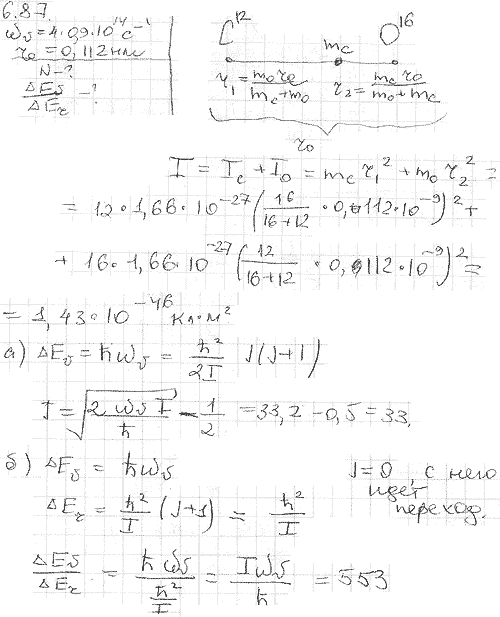 6.87.
ω_υ = 4.09·10^14 с^-1
r_0 = 0,112 нм
N-?
ΔE_υ/ΔE_r -?
C^12 m_c O^16
r_1 = m_o r_0/(m_c+m_o) r_2 = m_c r_0/(m_o+m_c)
r_0
I = I_c + I_o = m_c r_1^2 + m_o r_2^2 =
= 12·1,66·10^-27 (16/(16+12) · 0,112·10^-9)^2 +
+ 16·1,66·10^-27 (12/(16+12) · 0,112·10^-9)^2 =
= 1,43·10^-46 кг·м^2
а) ΔE_υ = ħω_υ = ħ^2/2I J(J+1)
J = √(2ω_υ I/ħ) - 1/2 = 33,2 - 0,5 = 33.
б) ΔE_υ = ħω_υ J=0, с него
идет
ΔE_r = ħ^2/I (J+1) = ħ^2/I переход.
ΔE_υ/ΔE_r = ħω_υ/(ħ^2/I) = Iω_υ/ħ = 553